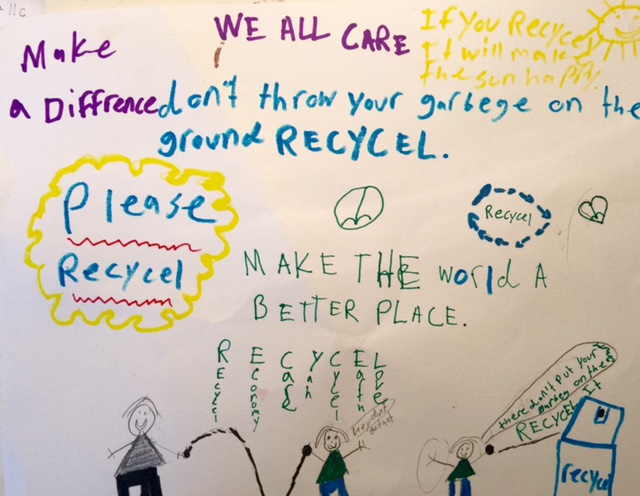 llc
WE ALL CARE
Make
a Diffrence
If you Recycel
It will make
the sun happy!
don't throw your garbege on the
ground RECYCEL.
Please
Recycel
Recycel
MAKE THE world A
BETTER PLACE.
RECYCEL
Recycel
Economy
Can
Earth
Love
Hey dont
do that
there don't put your
garbeg on the
RECYCEL It
recycel